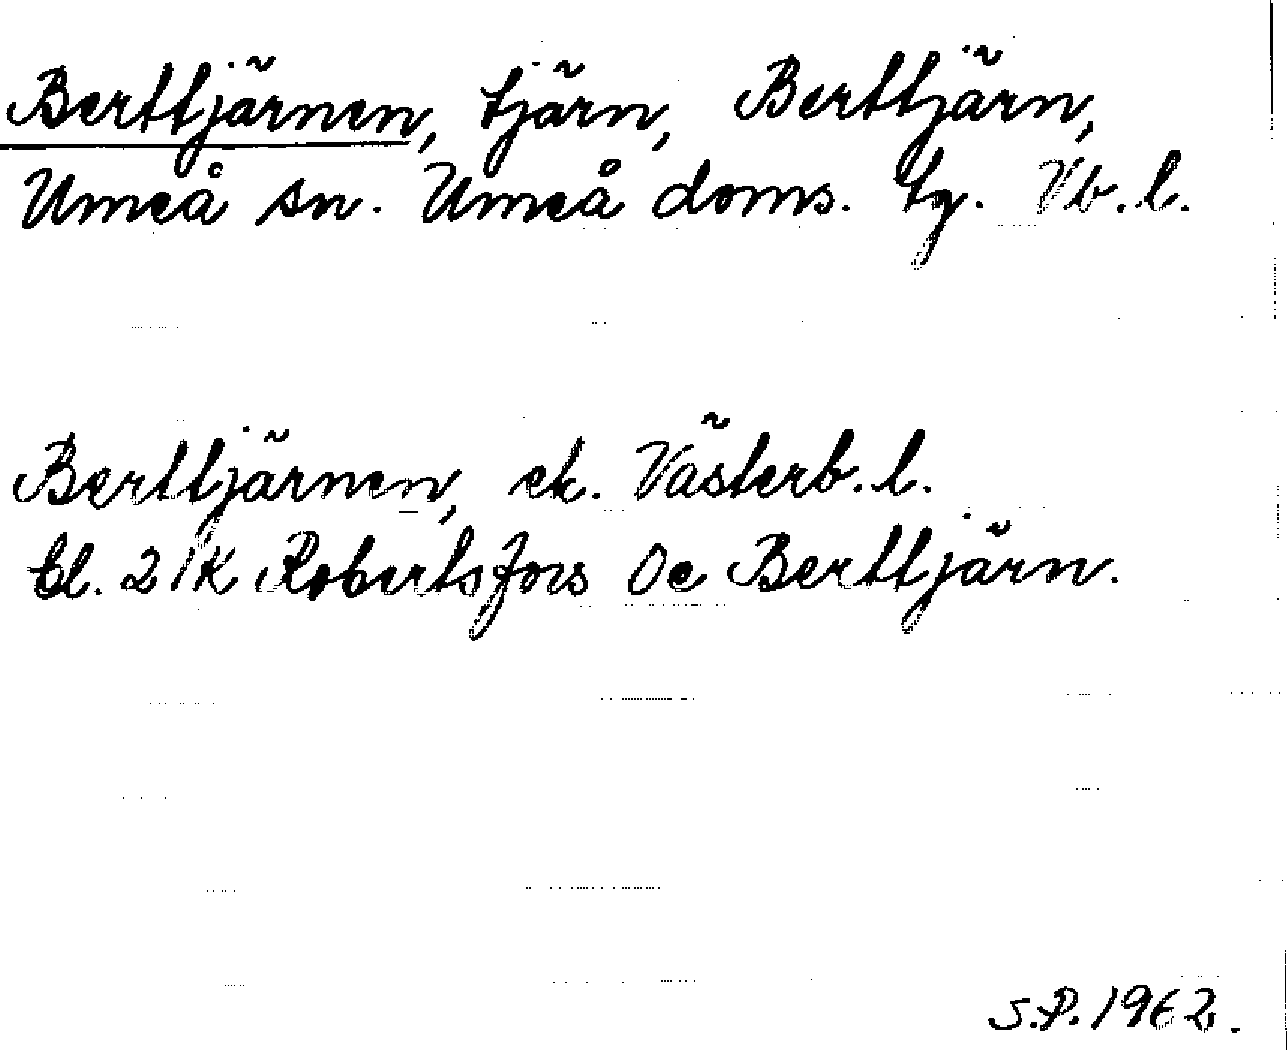 Berttjärnen, tjärn, Berttjärn,
Umeå sn. Umeå doms. tg. Vb.l.
Berttjärnen, ek. Västerb.l.
bl. 21K Robertsfors 0e Berttjärn.
S.P. 1962.